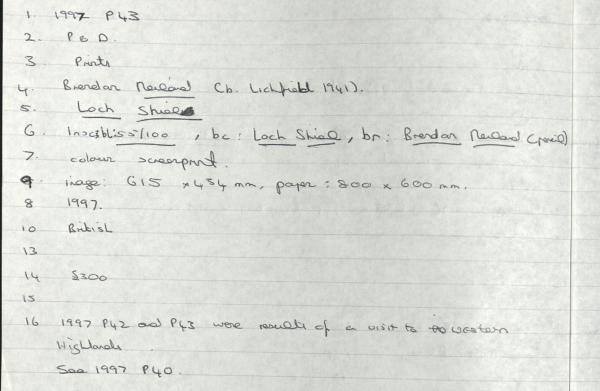 1 1997 P43
2. P & D.
3 Prints
4. Brendan Neiland (b. Lichfield 1941).
5. Loch Shiel
6. Inscr: bl: 55/100, bc: Loch Shiel, br: Brendan Neiland (pencil)
7. colour screenprint.
9 image: 615 x 454 mm, paper: 800 x 600 mm.
8 1997.
10 British
13
14 £300
15
16 1997 P42 and P43 were results of a visit to western
Highlands
See 1997 P40.